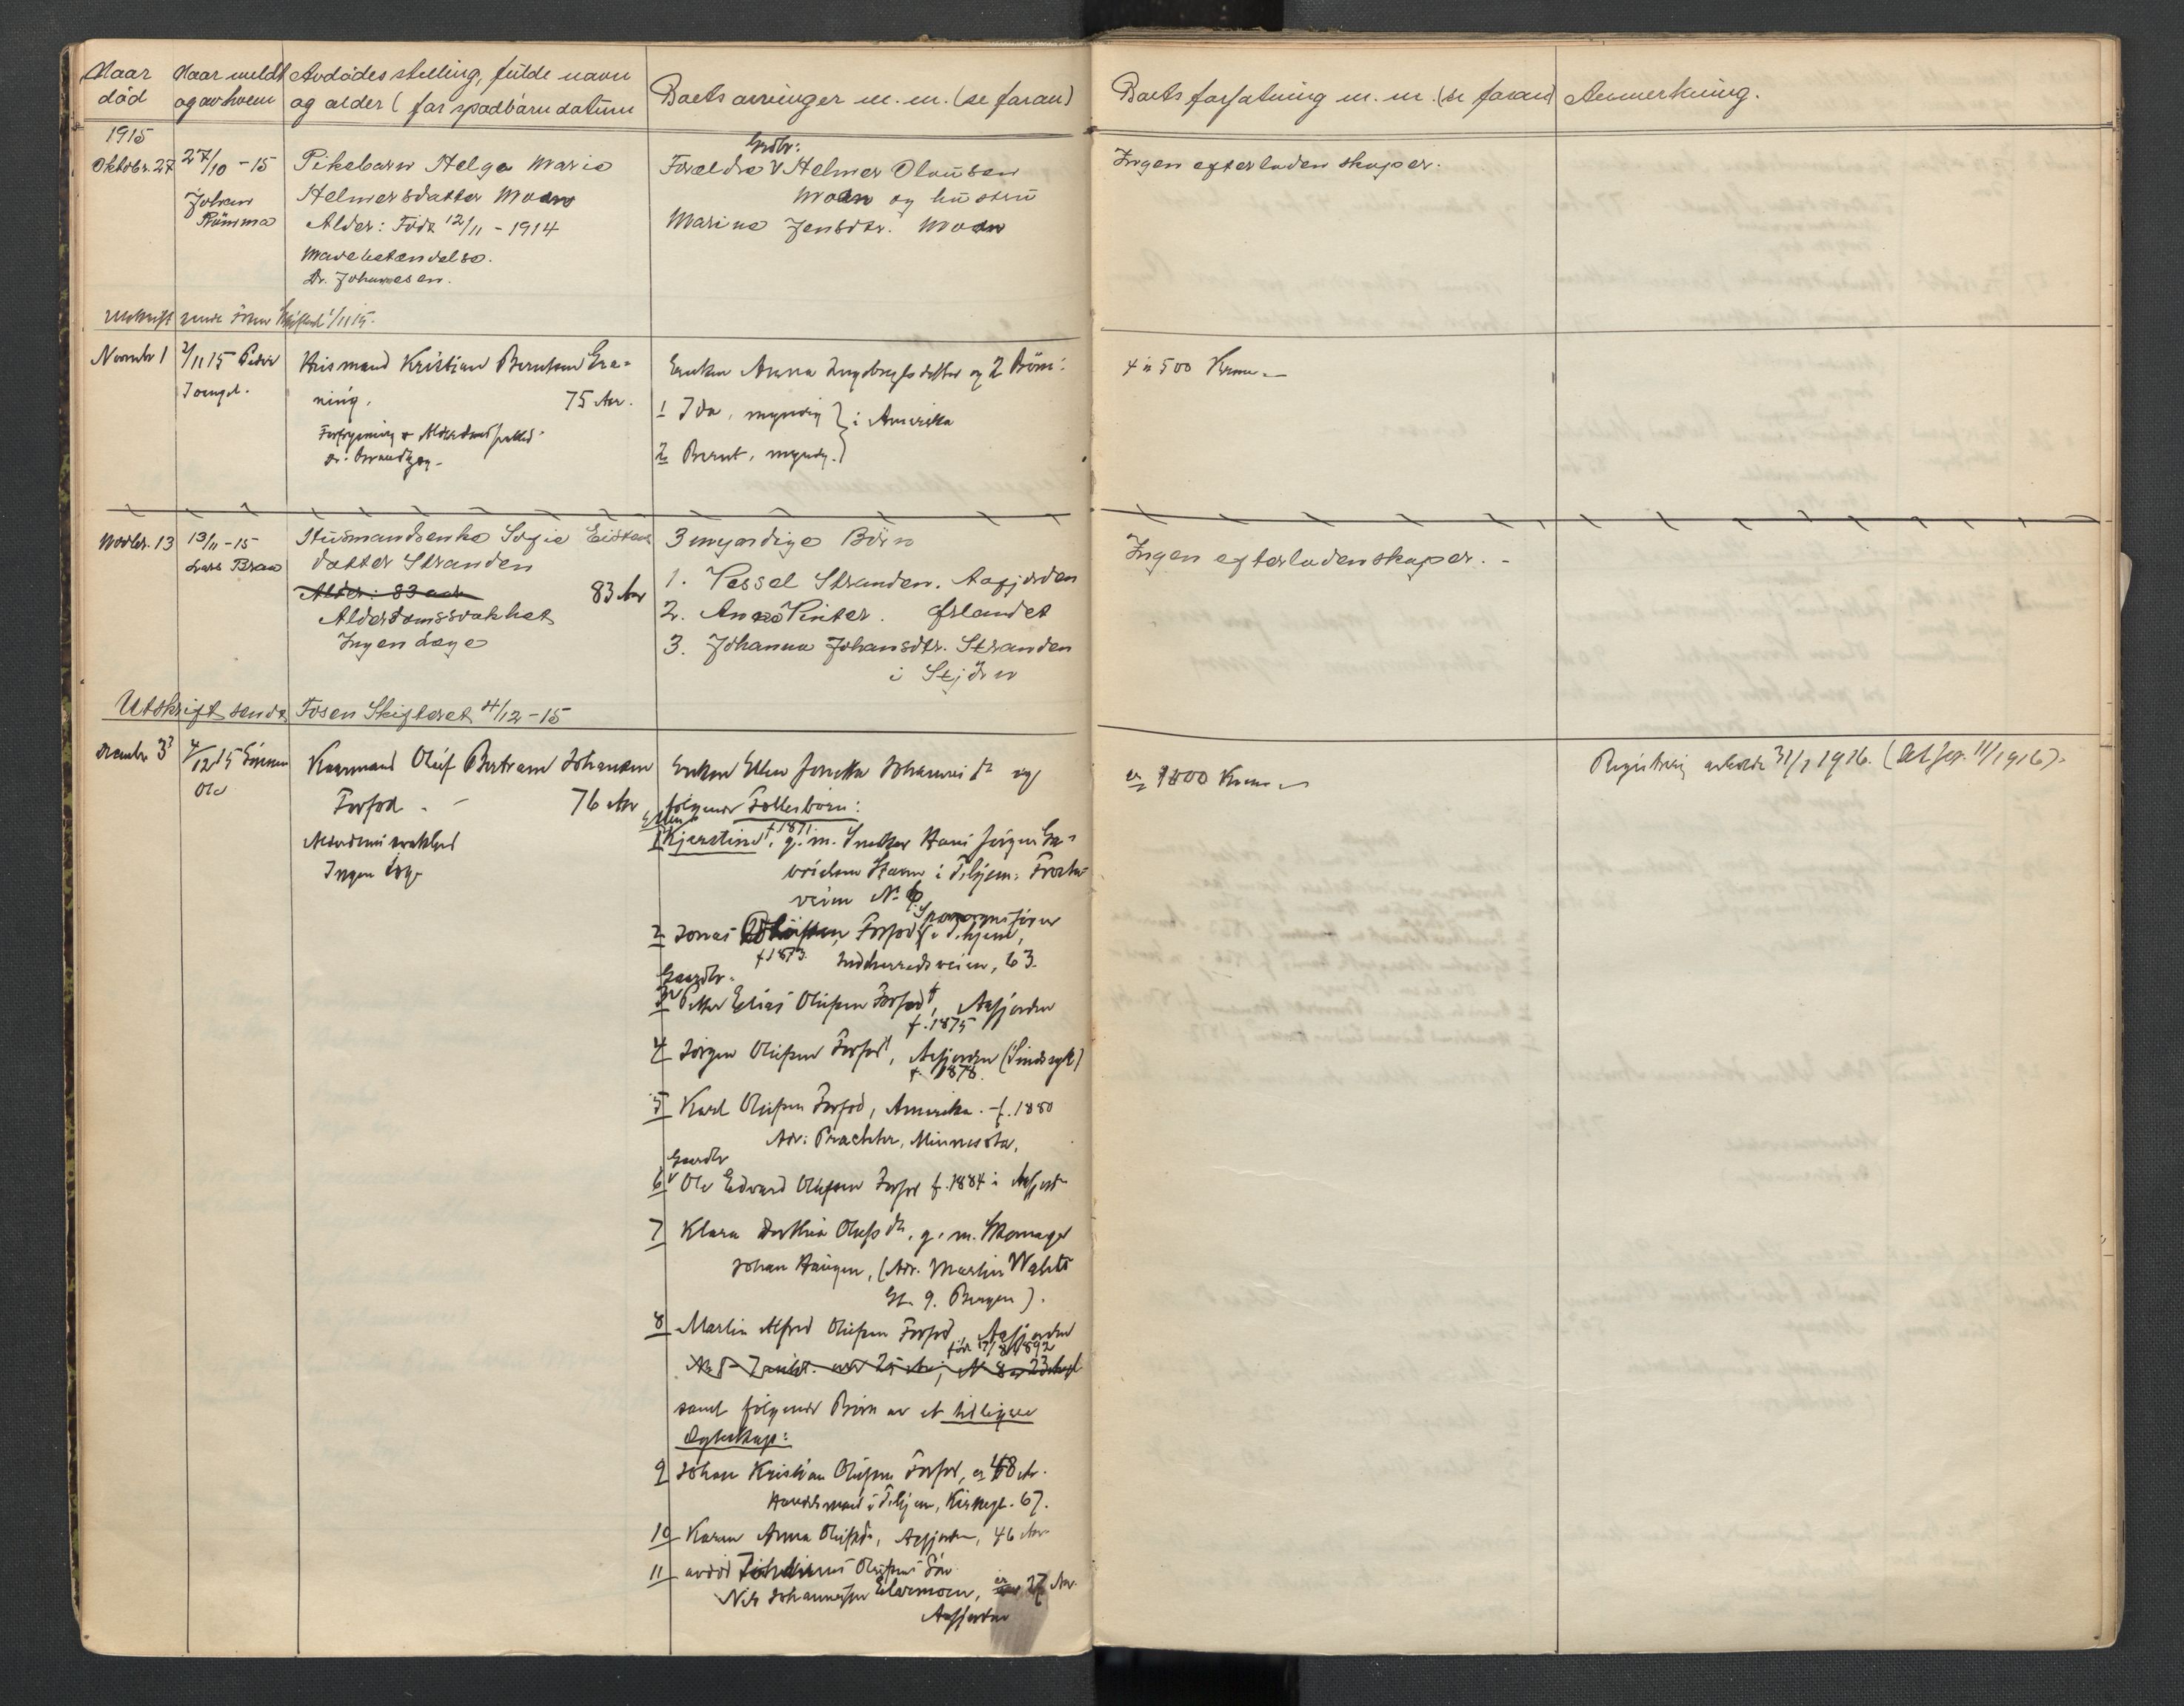 Naar død
Naar meldt og av hvem
Avdødes stilling, fulde navn og alder (for spædbarn datum
Boets arvinger m. m. (se foran)
Boets forfatning m. m. (se foran)
Anmerkning.
1915
Oktobr. 27
27/10 - 15
Johan
Pikebarn Helga Marie
Helmersdatter Moan
Alder: Født 12/11 - 1914
Mavebetændelse.
Dr. Johannesen.
Grdbr:
Forældre Helmer Olausen
Moan og hustru
Marine Jensdtr. Moan
Ingen efterladenskaper.
Utskrift sendt Fosen Skifteret 1/11 15.
Novembr 1
2/11 15 Peder
Husmand Kristian Berntsen Gra=
ning,
75 Aar.
Forfrysning & Alderdomssvakhed
Enken Anna Ingebrigtsdatter og 2 Børn:
1 Ida, myndig } i Amerika
2 Bernt, myndig. }
4 à 500 Kroner
Novbr. 13
13/11 - 15
Lars Bran
Husmandsenke Sofie Eistens
datter Stranden
Alder: 83 aar
83 Aar
Alderdomssvakhet
Ingen Læge
3 myndige Børn
1. Vessel Stranden. Aafjorden
2. Anna Vinter. Ørlandet
3. Johanna Johansdtr. Stranden
i Stjørn
Ingen efterladenskaper. -
Utskrift sendt Fosen Skifteret 4/12 - 15
Decembr 3
4/12 15 Sønnen
Ole
Kaarmand Oluf Bertram Johansen
Forfod. -
76 Aar
Alderdomssvakhed
Ingen Læge
Enken Ellen Jonetta Johannesdtr og
følgende Fællesbørn:
1 Ellen Kjerstine, f 1871. g. m. Snekker Hans Jørgen
Haarn i Trhjem:
veien No 6
2 Jonas Forfod, i Trhjem,
f 1873. Indherredsveien, 63.
Gaardbr.
3 Petter Elias Olufsen Forfod, Aafjorden
f. 1875
4 Jørgen Olufsen Forfod, Aafjorden (Sindssyk)
f. 1878.
5 Karl Olufsen Forfod, Amerika. f. 1880
Adr: Minnesota.
Gaardbr
6 Ole Edvard Olufsen Forfod f. 1884 i Aafjord
7 Klara Dorthea Olufsdtr, g. m. Skomager
Johan Haugen, (Adr. Martin Wahls
Gt. 9. Bergen).
8 Martin Alfred Olufsen Forfod, Aafjorden
født 17/8 1892
samt følgende Børn av et tidligere
Ægteskap:
9 Johan Kristian Olufsen Forfod, er 48 Aar.
Handelsmand i Trhjem, Kirkegt. 67.
10 Karen Anna Olufsdtr, Aafjorden, 46 Aar
11 avdød Johannes Olufsens Søn
Nils Johannessen Eldermoen, er 27 Aar.
Aafjorden
ca 1800 Kroner
Registrering avholdt 31/1 1916. (Se 11/1916).